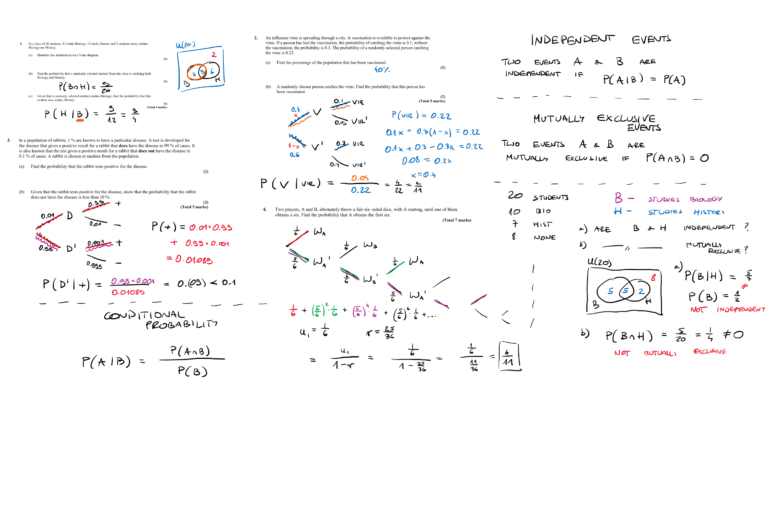 1. In a class of 20 students, 12 study Biology, 15 study History and 2 students study neither Biology nor History.
(a) Illustrate this information on a Venn diagram.
(2)
(b) Find the probability that a randomly selected student from this class is studying both Biology and History.
P(B∩H) =
(c) Given that a randomly selected student studies Biology, find the probability that this student also studies History.
(Total 4 marks)
P(H|B) = 9/12 = 3/4
U(20)
2
B
H
3. In a population of rabbits, 1 % are known to have a particular disease. A test is developed for
the disease that gives a positive result for a rabbit that does have the disease in 99 % of cases. It
is also known that the test gives a positive result for a rabbit that does not have the disease in
0.1 % of cases. A rabbit is chosen at random from the population.
(a) Find the probability that the rabbit tests positive for the disease.
(2)
(b) Given that the rabbit tests positive for the disease, show that the probability that the rabbit
does not have the disease is less than 10 %.
(3)
(Total 5 marks)
0.99 +
0.01 D
-
0.99 D' 0.001 +
0.999 -
P(+) = 0.01·0.99
+ 0.99·0.001
= 0.01089
P(D'|+) = 0.99·0.001 / 0.01089 = 0.(09) < 0.1
CONDITIONAL
PROBABILITY
P(A|B) = P(A∩B) / P(B)
2. An influenza virus is spreading through a city. A vaccination is available to protect against the
virus. If a person has had the vaccination, the probability of catching the virus is 0.1; without
the vaccination, the probability is 0.3. The probability of a randomly selected person catching
the virus is 0.22.
(a) Find the percentage of the population that has been vaccinated.
40%
(3)
(b) A randomly chosen person catches the virus. Find the probability that this person has
been vaccinated.
(2)
(Total 5 marks)
0.1 VIR
0.4 V
0.9 VIR'
1-x V' 0.3 VIR
0.6
VIR'
P(VIR) = 0.22
0.1x + 0.3(1-x) = 0.22
0.1x + 0.3 - 0.3x = 0.22
0.08 = 0.2x
x = 0.4
P(V|VIR) = 0.04 / 0.22 = 4/22 = 2/11
4. Two players, A and B, alternately throw a fair six-sided dice, with A starting, until one of them
obtains a six. Find the probability that A obtains the first six.
(Total 7 marks)
1/6 WA
1/6 WB
5/6 WA'
1/6 WA
5/6 WB'
5/6 WA'
1/6 + (5/6)²·1/6 + (5/6)⁴·1/6 + (5/6)⁶·1/6 + ...
u₁ = 1/6 r = 25/36
= u₁ / 1-r = 1/6 / 1 - 25/36 = 1/6 / 11/36 = 6/11
INDEPENDENT EVENTS
TWO EVENTS A & B ARE
INDEPENDENT IF P(A|B) = P(A)
MUTUALLY EXCLUSIVE
EVENTS
TWO EVENTS A & B ARE
MUTUALLY EXCLUSIVE IF P(A∩B) = 0
20 STUDENTS
10 BIO
7 HIST
8 NONE
B - STUDIES BIOLOGY
H - STUDIES HISTORY
a) ARE B & H INDEPENDENT?
b) —— " —— MUTUALLY
EXCLUSIVE?
U(20)
8
5 5 2
B H
a) P(B|H) = 5/7
≠
P(B) = 1/2
NOT INDEPENDENT
b) P(B∩H) = 5/20 = 1/4 ≠ 0
NOT MUTUALLY EXCLUSIVE